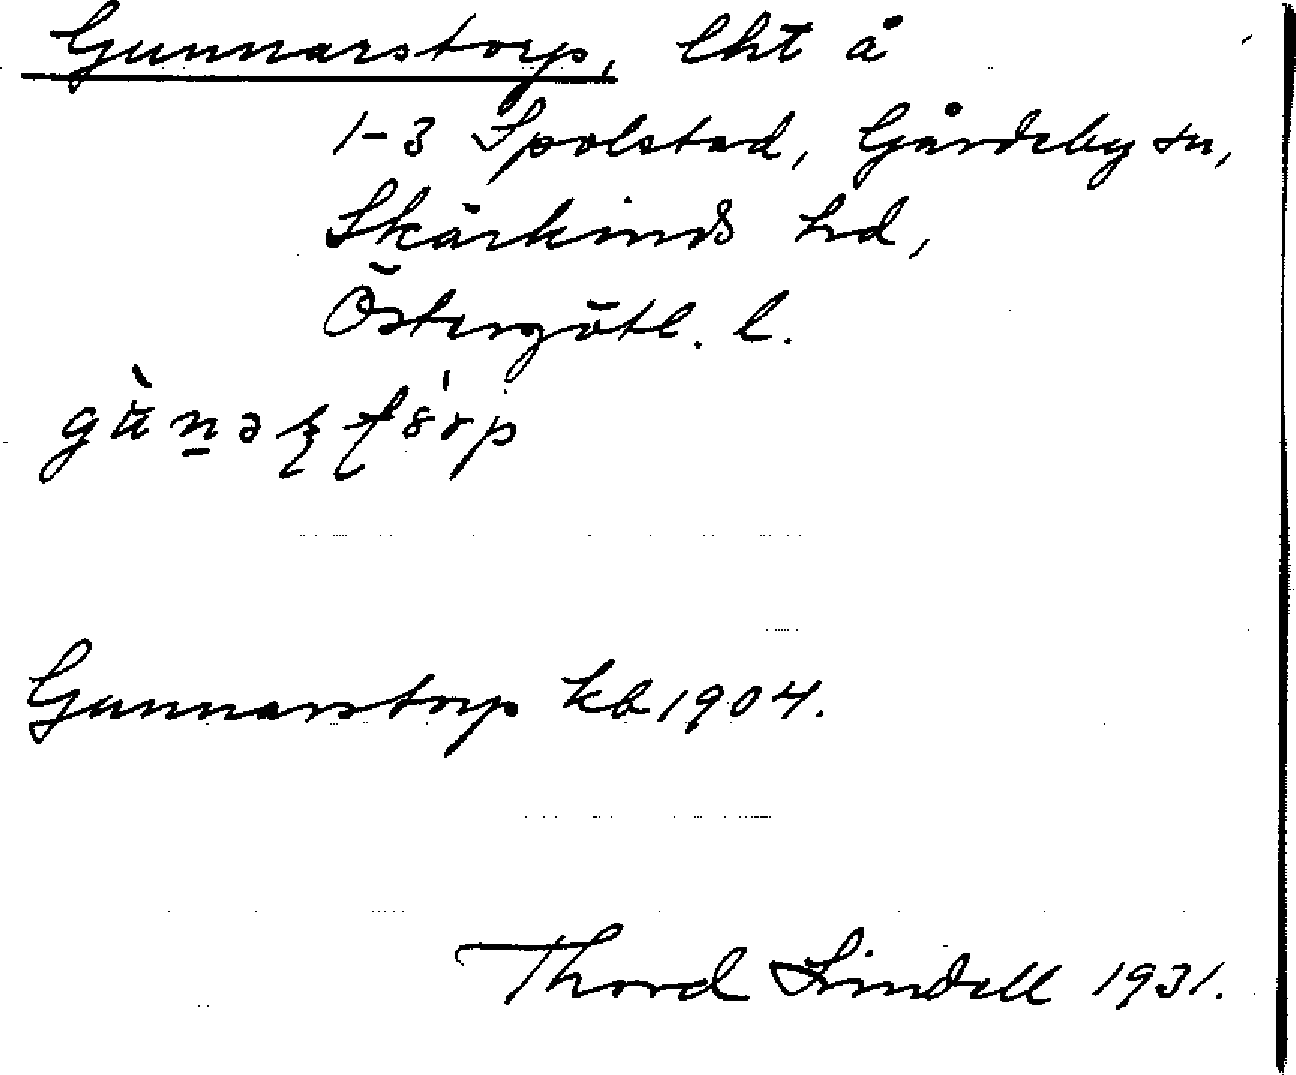 Gunnarstorp, lht å
1-3 Spolstad, Gårdeby sn,
Skärkinds hd,
Östergötl. l.
Gunnarstorp kb 1904.
Thord Lindell 1931.